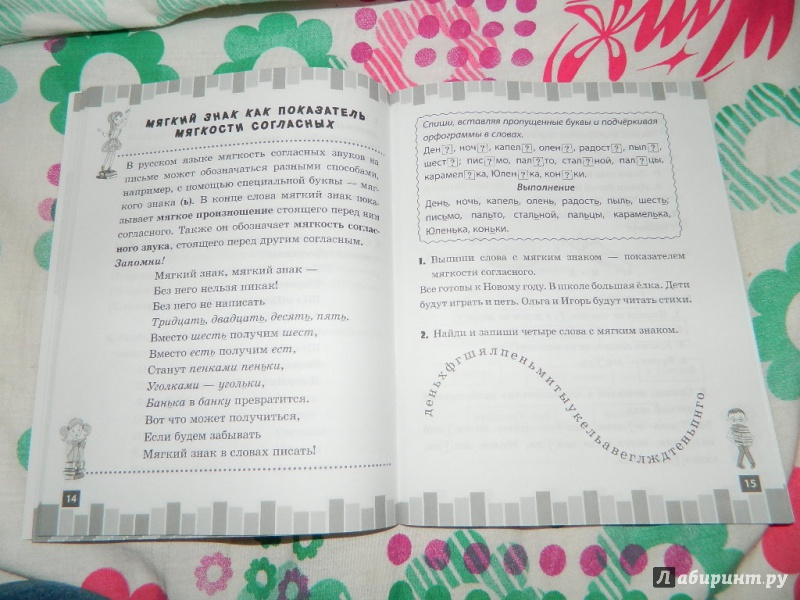 МЯГКИЙ ЗНАК КАК ПОКАЗАТЕЛЬ
МЯГКОСТИ СОГЛАСНЫХ
В русском языке мягкость согласных звуков на
письме может обозначаться разными способами,
например, с помощью специальной буквы — мяг-
кого знака (ь). В конце слова мягкий знак пока-
зывает мягкое произношение стоящего перед ним
согласного. Также он обозначает мягкость соглас-
ного звука, стоящего перед другим согласным.
Запомни!
Мягкий знак, мягкий знак —
Без него нельзя никак!
Без него не написать
Тридцать, двадцать, десять, пять.
Вместо шесть получим шест,
Вместо есть получим ест,
Станут пенками пеньки,
Уголками — угольки,
Банька в банку превратится.
Вот что может получиться,
Если будем забывать
Мягкий знак в словах писать!
14
Спиши, вставляя пропущенные буквы и подчёркивая
орфограммы в словах.
Ден?, ноч?, капел?, олен?, радост?, пыл?,
шест?; пис?мо, пал?то, стал?ной, пал?цы,
карамел?ка, Юлен?ка, кон?ки.
Выполнение
День, ночь, капель, олень, радость, пыль, шесть;
письмо, пальто, стальной, пальцы, карамелька,
Юленька, коньки.
1. Выпиши слова с мягким знаком — показателем
мягкости согласного.
Все готовы к Новому году. В школе большая ёлка. Дети
будут играть и петь. Ольга и Игорь будут читать стихи.
2. Найди и запиши четыре слова с мягким знаком.
деньхфгшялпеньмитыукельавеглждтеньпнго
15
Лабиринт.ру